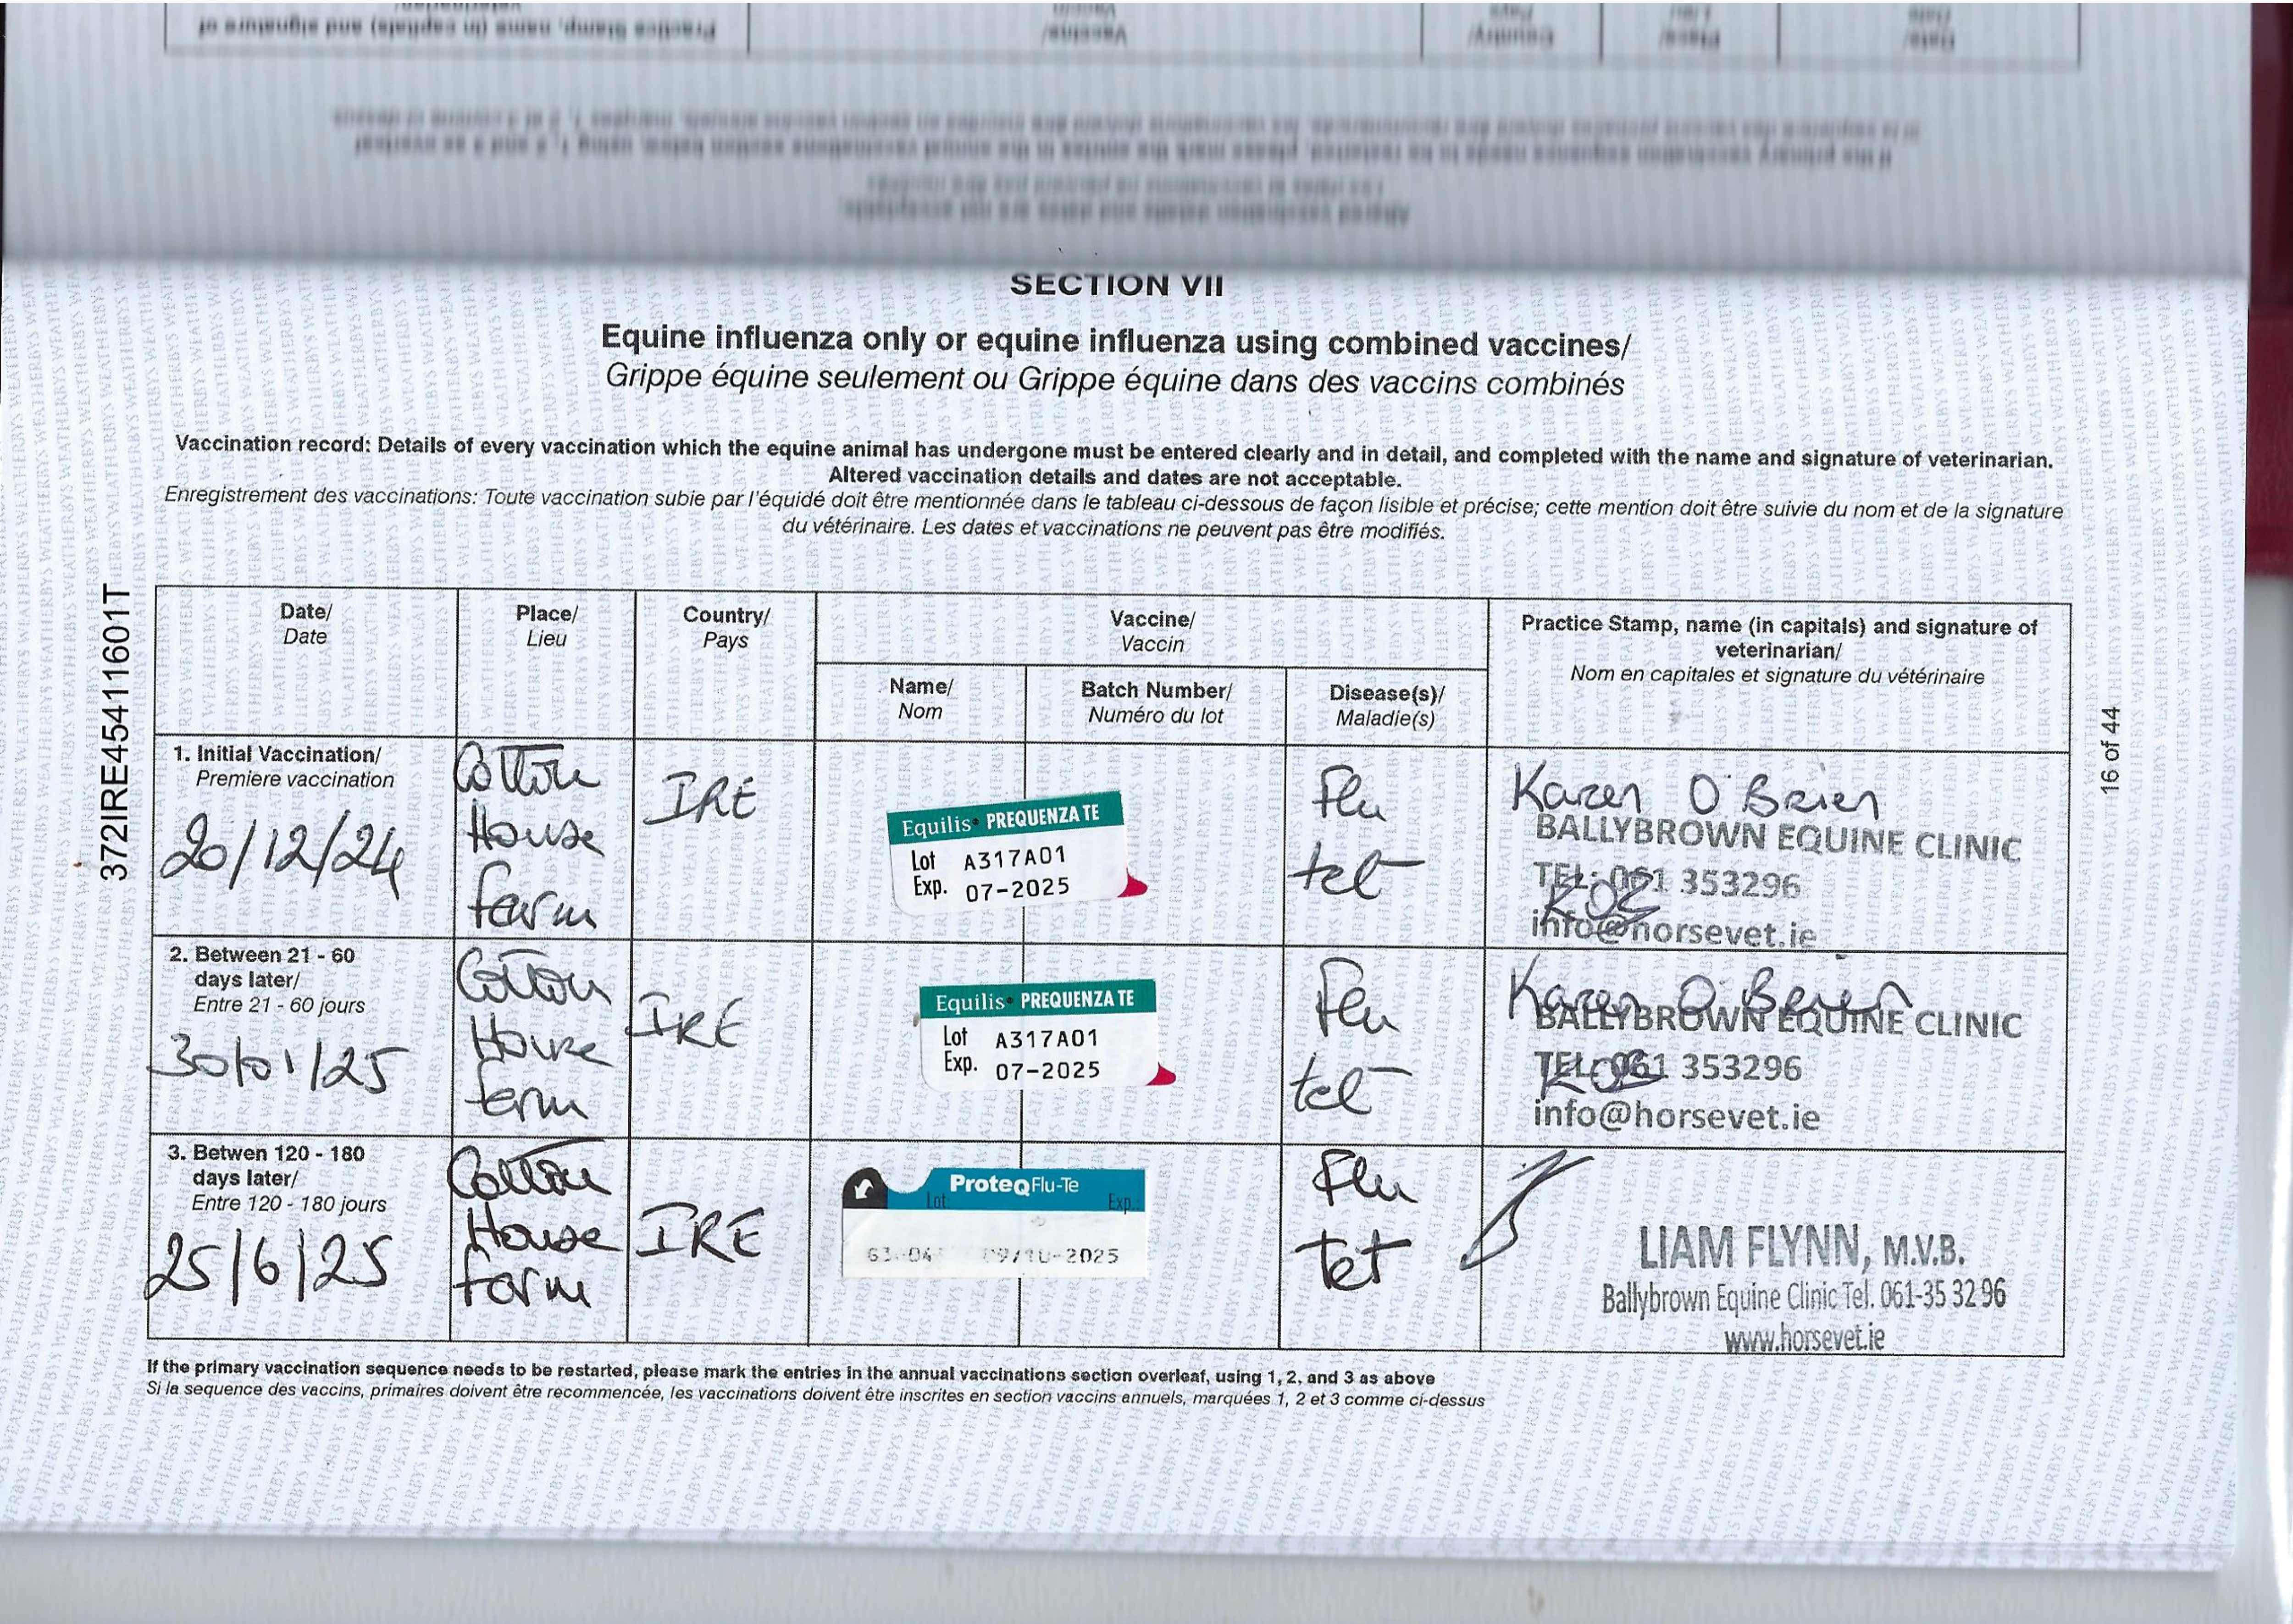 SECTION VII
Equine influenza only or equine influenza using combined vaccines/
Grippe équine seulement ou Grippe équine dans des vaccins combinés
Vaccination record: Details of every vaccination which the equine animal has undergone must be entered clearly and in detail, and completed with the name and signature of veterinarian.
Altered vaccination details and dates are not acceptable.
Enregistrement des vaccinations: Toute vaccination subie par l'équidé doit être mentionnée dans le tableau ci-dessous de façon lisible et précise; cette mention doit être suivie du nom et de la signature
du vétérinaire. Les dates et vaccinations ne peuvent pas être modifiés.
372IRE454116601T
16 of 44
Date/
Date
Place/
Lieu
Country/
Pays
Vaccine/
Vaccin
Practice Stamp, name (in capitals) and signature of
veterinarian/
Nom en capitales et signature du vétérinaire
Name/
Nom
Batch Number/
Numéro du lot
Disease(s)/
Maladie(s)
1. Initial Vaccination/
Premiere vaccination
20/12/24
Cotton
House
farm
IRE
Equilis PREQUENZA TE
Lot A317A01
Exp. 07-2025
Flu
tet
Karen O'Brien
BALLYBROWN EQUINE CLINIC
TEL: 061 353296
info@horsevet.ie
2. Between 21 - 60
days later/
Entre 21 - 60 jours
30/01/25
Cotton
House
farm
IRE
Equilis PREQUENZA TE
Lot A317A01
Exp. 07-2025
Flu
tet
Karen O'Brien
BALLYBROWN EQUINE CLINIC
TEL: 061 353296
info@horsevet.ie
3. Betwen 120 - 180
days later/
Entre 120 - 180 jours
25/6/25
Cotton
House
farm
IRE
ProteqFlu-Te
Lot: Exp.:
Flu
tet
LIAM FLYNN, M.V.B.
Ballybrown Equine Clinic Tel. 061-35 32 96
www.horsevet.ie
If the primary vaccination sequence needs to be restarted, please mark the entries in the annual vaccinations section overleaf, using 1, 2, and 3 as above
Si la sequence des vaccins, primaires doivent être recommencée, les vaccinations doivent être inscrites en section vaccins annuels, marquées 1, 2 et 3 comme ci-dessus